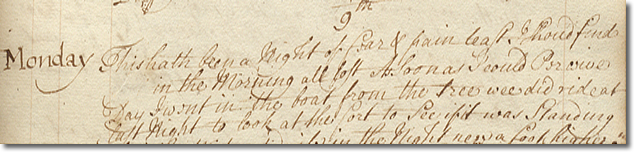 9th
Monday This hath been a Night of fear & pain least I should find
in the Morning all lost As soon as I could Perceive
Day I went in the boat from the tree wee did ride at
last Night to look at the fort to See if it was Standing
in the Night near a foot higher